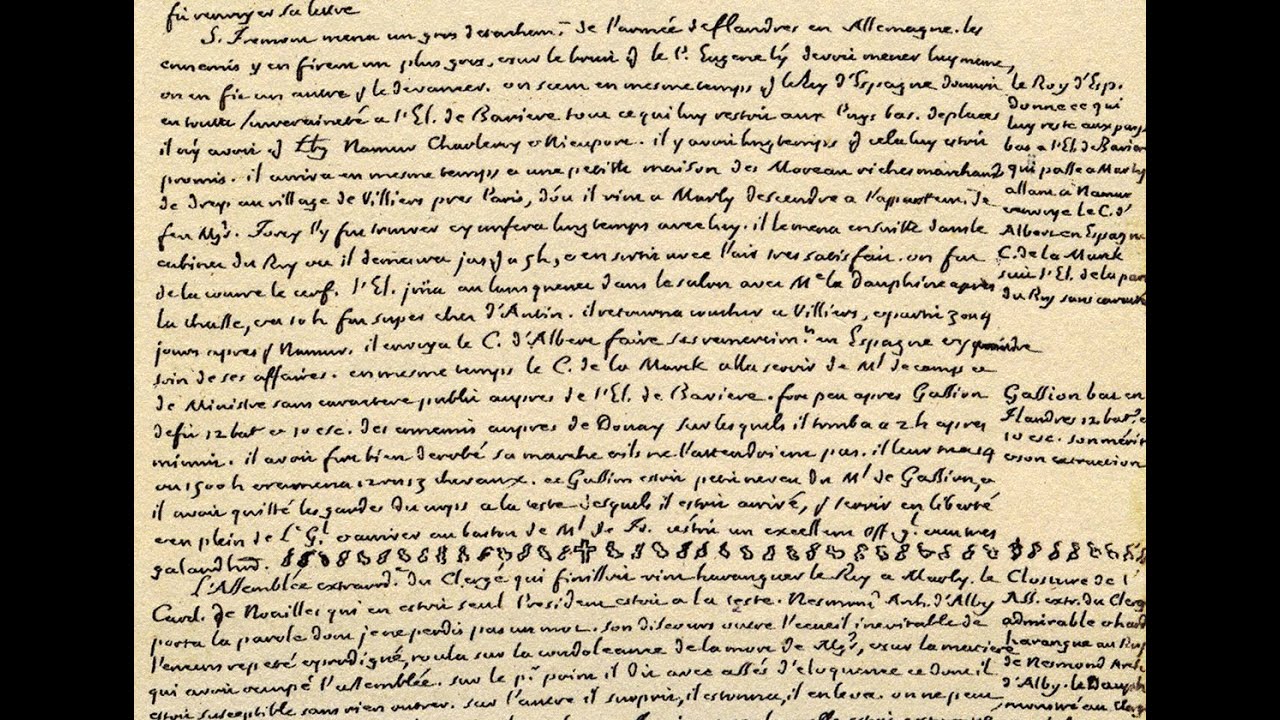 fit renvoyer sa lettre
S. Fremont mena un gros detachem.t de l'armée de flandres en Allemagne. les
ennemis y en firent un plus gros, et sur le bruit q le P. Eugene devoit mener luy mesme,
on en fit un autre le devancer. on sceut en mesme temps q le Roy d'Espagne donnoit
en toutte souveraineté a l'El. de Baviere tout ce qui luy restoit aux Pays bas. de places
il n'y avoit q Namur Charleroy et Nieuport. il y avoit longtemps q cela luy estoit
promis. il arriva en mesme temps a une petitte maison des Moreau riches marchands
de drap au village de Villiers pres Paris, d'où il vint a Marly descendre a l'appartem. de
feu Mgr. Torcy l'y fut trouver et y confera longtemps avec luy. il le mena ensuitte dans le
cabinet du Roy ou il demeura jusq a 5 h, et en sortit avec l'air tres satisfait. on fut
de la courre le cerf. l'El. joüa au lansquenet dans le salon avec Me la Dauphine apres
la chasse, et a 10 h fut souper chez d'Antin. il retourna coucher a Villiers, et partit 3 ou 4
jours apres Namur. il envoya le C. d'Albert faire ses remercim.ts en Espagne et y prendre
soin de ses affaires. en mesme temps le C. de la Marck alla servir de Ml de camp et
de Ministre sans caractere public aupres de l'El. de Baviere. fort peu apres Gassion
defit 12 bat et 10 esc. des ennemis aupres de Douay sur lesquels il tomba a 2 h apres
minuit. il avoit fort bien derobé sa marche et ils ne l'attendoient pas. il leur
ou 1500 h et ramena 12 ou 13 chevaux. ce Gassion estoit petit neveu du Ml de Gassion, et
il avoit quitté les gardes du corps a la teste desquels il estoit arrivé, servir en liberté
et en plein de Lt Gl et arriver au baston de Ml de Fr. c'estoit un excellent off. gl et un tres
galand hom̃e.
L'Assemblée extraord.re du Clergé qui finissoit vint haranguer le Roy a Marly. le
Card. de Noailles qui en estoit seul President estoit a la teste. Nesmond Arch. d'Alby
porta la parole dont je ne perdis pas un mot. son discours outre l'ecueil inevitable de
l'encens repeté et prodigué, roula sur la condoleance de la mort de Mgr, et sur la matiere
qui avoit occupé l'assemblée. sur le pr point il dit avec assés d'eloquence ce dont il
estoit susceptible sans rien outrer. sur l'autre il surprit, il estonna, il enleva. on ne peut
le Roy d'Esp.
donne ce qui
luy reste aux pays
bas a l'El. de Baviere
qui passe a Marly
allant a Namur
et envoye le C. d'
Albert en Espagne
C. de la Marck
suit l'El. de la part
du Roy sans caractere
Gassion bat en
Flandres 12 bat. et
10 esc. son mérite
et son extraction
Closture de l'
Ass. extr. du Clergé
admirable et hardie
harangue au Roy
de Nesmond Arch.
d'Alby. le Dauph
montré au Clergé